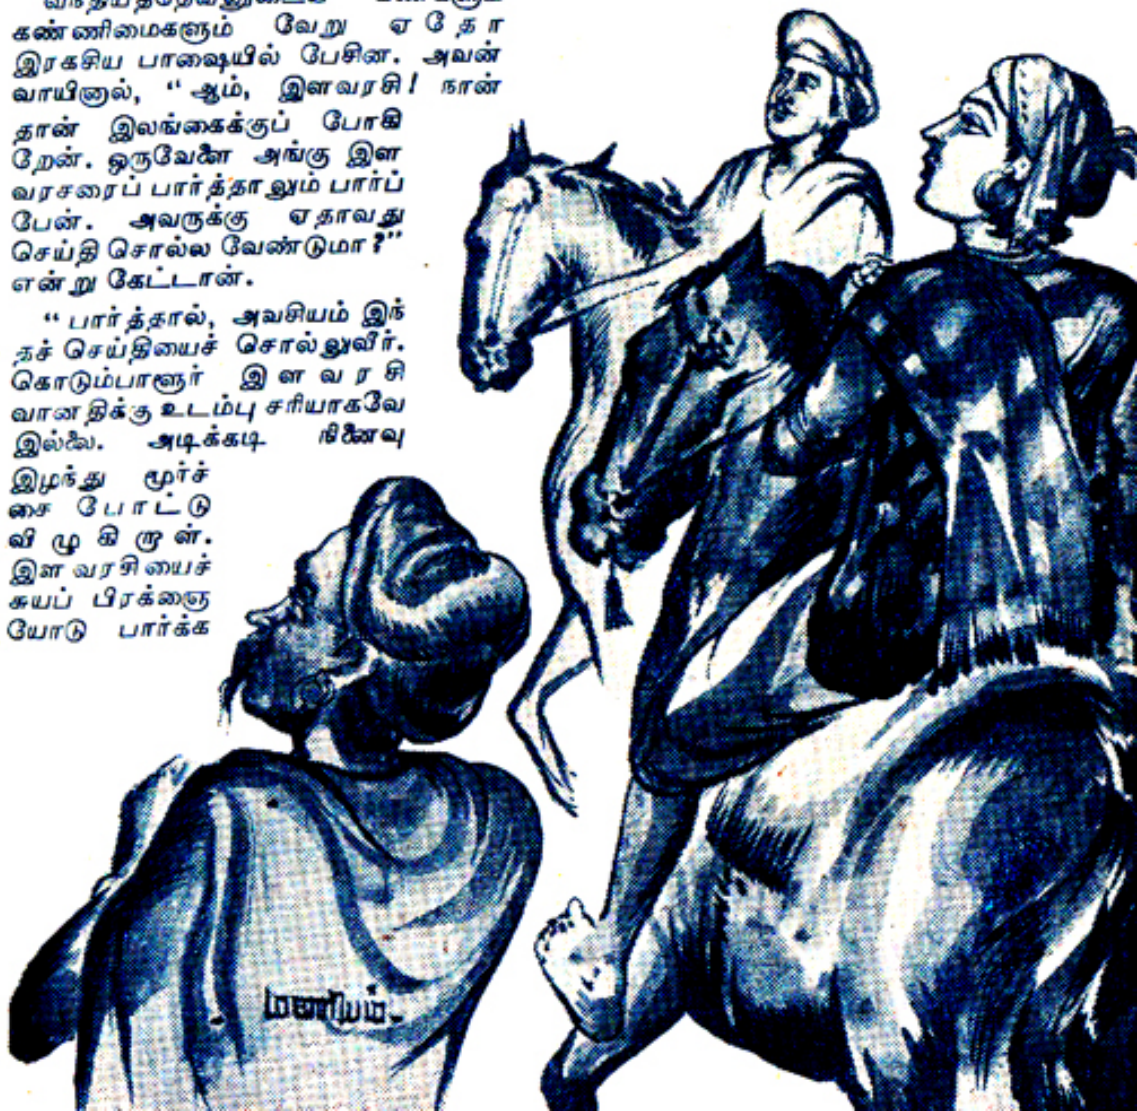 கண்ணிமைகளும் வேறு ஏதோ
இரகசிய பாஷையில் பேசின. அவன்
வாயினால், “ஆம், இளவரசி! நான்
தான் இலங்கைக்குப் போகி
றேன். ஒருவேளை அங்கு இள
வரசரைப் பார்த்தாலும் பார்ப்
பேன். அவருக்கு ஏதாவது
செய்தி சொல்ல வேண்டுமா?”
என்று கேட்டான்.
“பார்த்தால், அவசியம் இந்
தச் செய்தியைச் சொல்லுவீர்.
கொடும்பாளூர் இளவரசி
வானதிக்கு உடம்பு சரியாகவே
இல்லை. அடிக்கடி நினைவு
இழந்து மூர்ச்
சை போட்டு
விழுகிறாள்.
இளவரசியைச்
சுயப் பிரக்ஞை
யோடு பார்க்க
மணியம்.